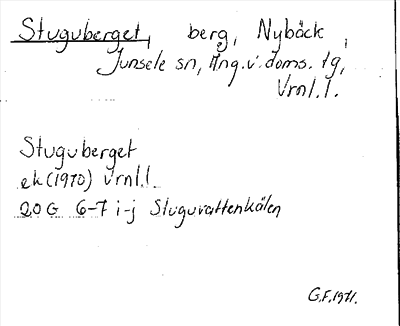 Stuguberget, berg, Nybäck,
Junsele sn, Ång.v.doms. tg,
Vrnl.l.
Stuguberget
ek (1970) Vrnl.l.
20 G 6-7 i-j Stuguvattenkälen
G.F. 1971.